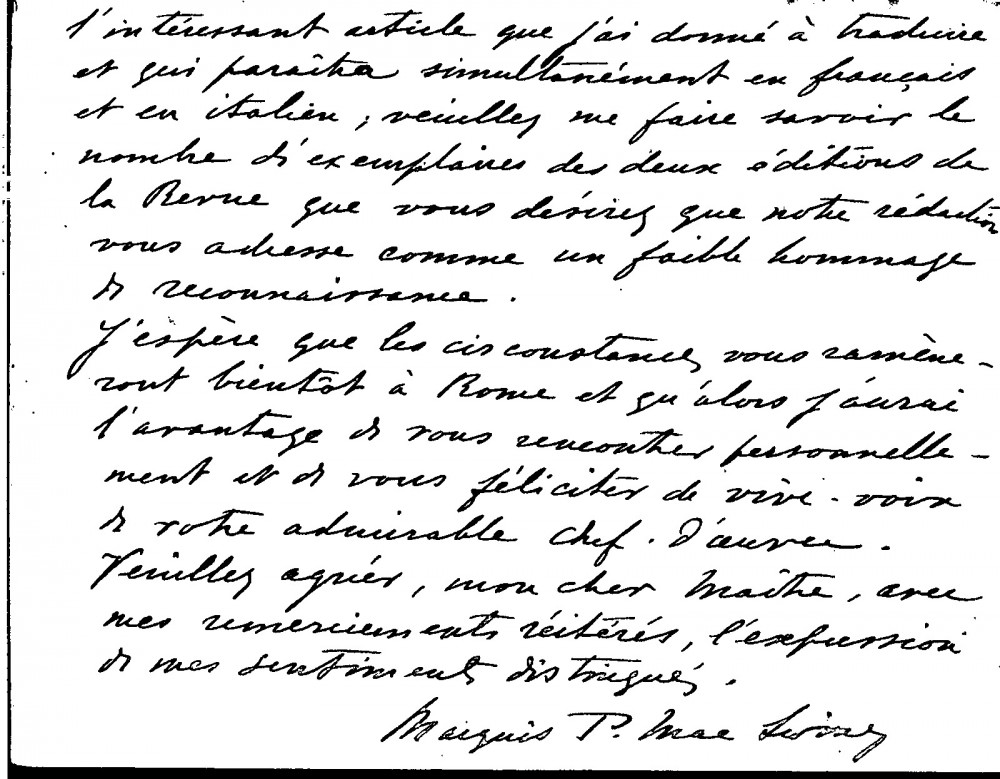 l'intéressant article que j'ai donné à traduire
et qui paraîtra simultanément en français
et en italien ; veuillez me faire savoir le
nombre d'exemplaires des deux éditions de
la Revue que vous désirez que notre rédaction
vous adresse comme un faible hommage
de reconnaissance.
J'espère que les circonstances vous ramène-
ront bientôt à Rome et qu'alors j'aurai
l'avantage de vous rencontrer personnelle-
ment et de vous féliciter de vive-voix
de votre admirable chef-d'œuvre.
Veuillez agréer, mon cher Maître, avec
mes remerciements réitérés, l'expression
de mes sentiments distingués.
Marquis P. Mac Swiney